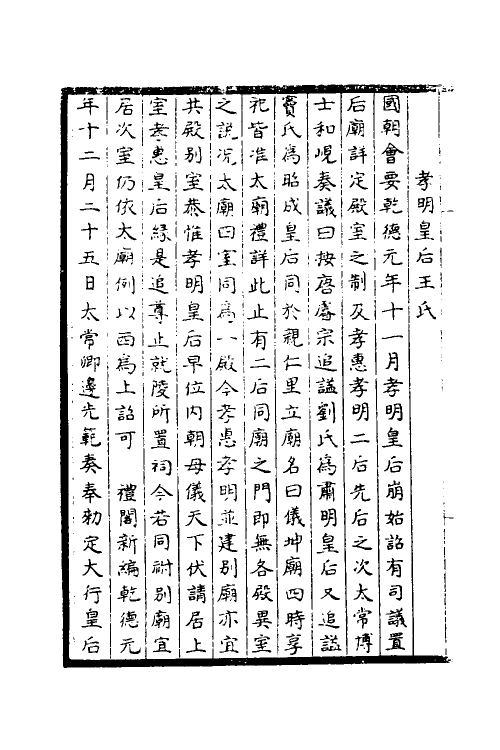 孝明皇后王氏
國朝會要乾德元年十一月孝明皇后崩始詔有司議置
后廟詳定殿室之制及孝惠孝明二后先后之次太常博
士和峴奏議曰按唐睿宗追謚劉氏爲肅明皇后又追謚
竇氏爲昭成皇后同於親仁里立廟名曰儀坤廟四時享
祀皆准太廟禮詳此止有二后同廟之門即無各殿異室
之說况太廟四室同爲一殿今孝惠孝明並建別廟亦宜
共殿別室恭惟孝明皇后早位内朝母儀天下伏請居上
室孝惠皇后緣是追尊止就陵所置祠今若同祔別廟宜
居次室仍依太廟例以西爲上詔可　禮閣新編乾德元
年十二月二十五日太常卿邊光範奏奉勑定大行皇后